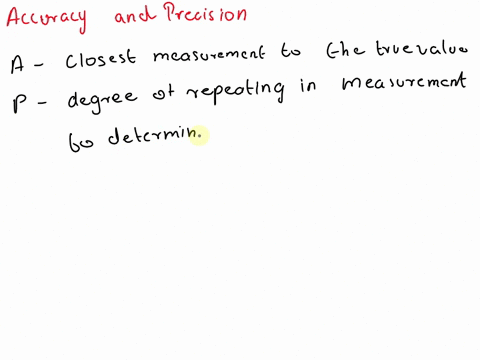 Accuracy and Precision
A - Closest measurement to the true value
P - degree of repeating in measurement
to determin